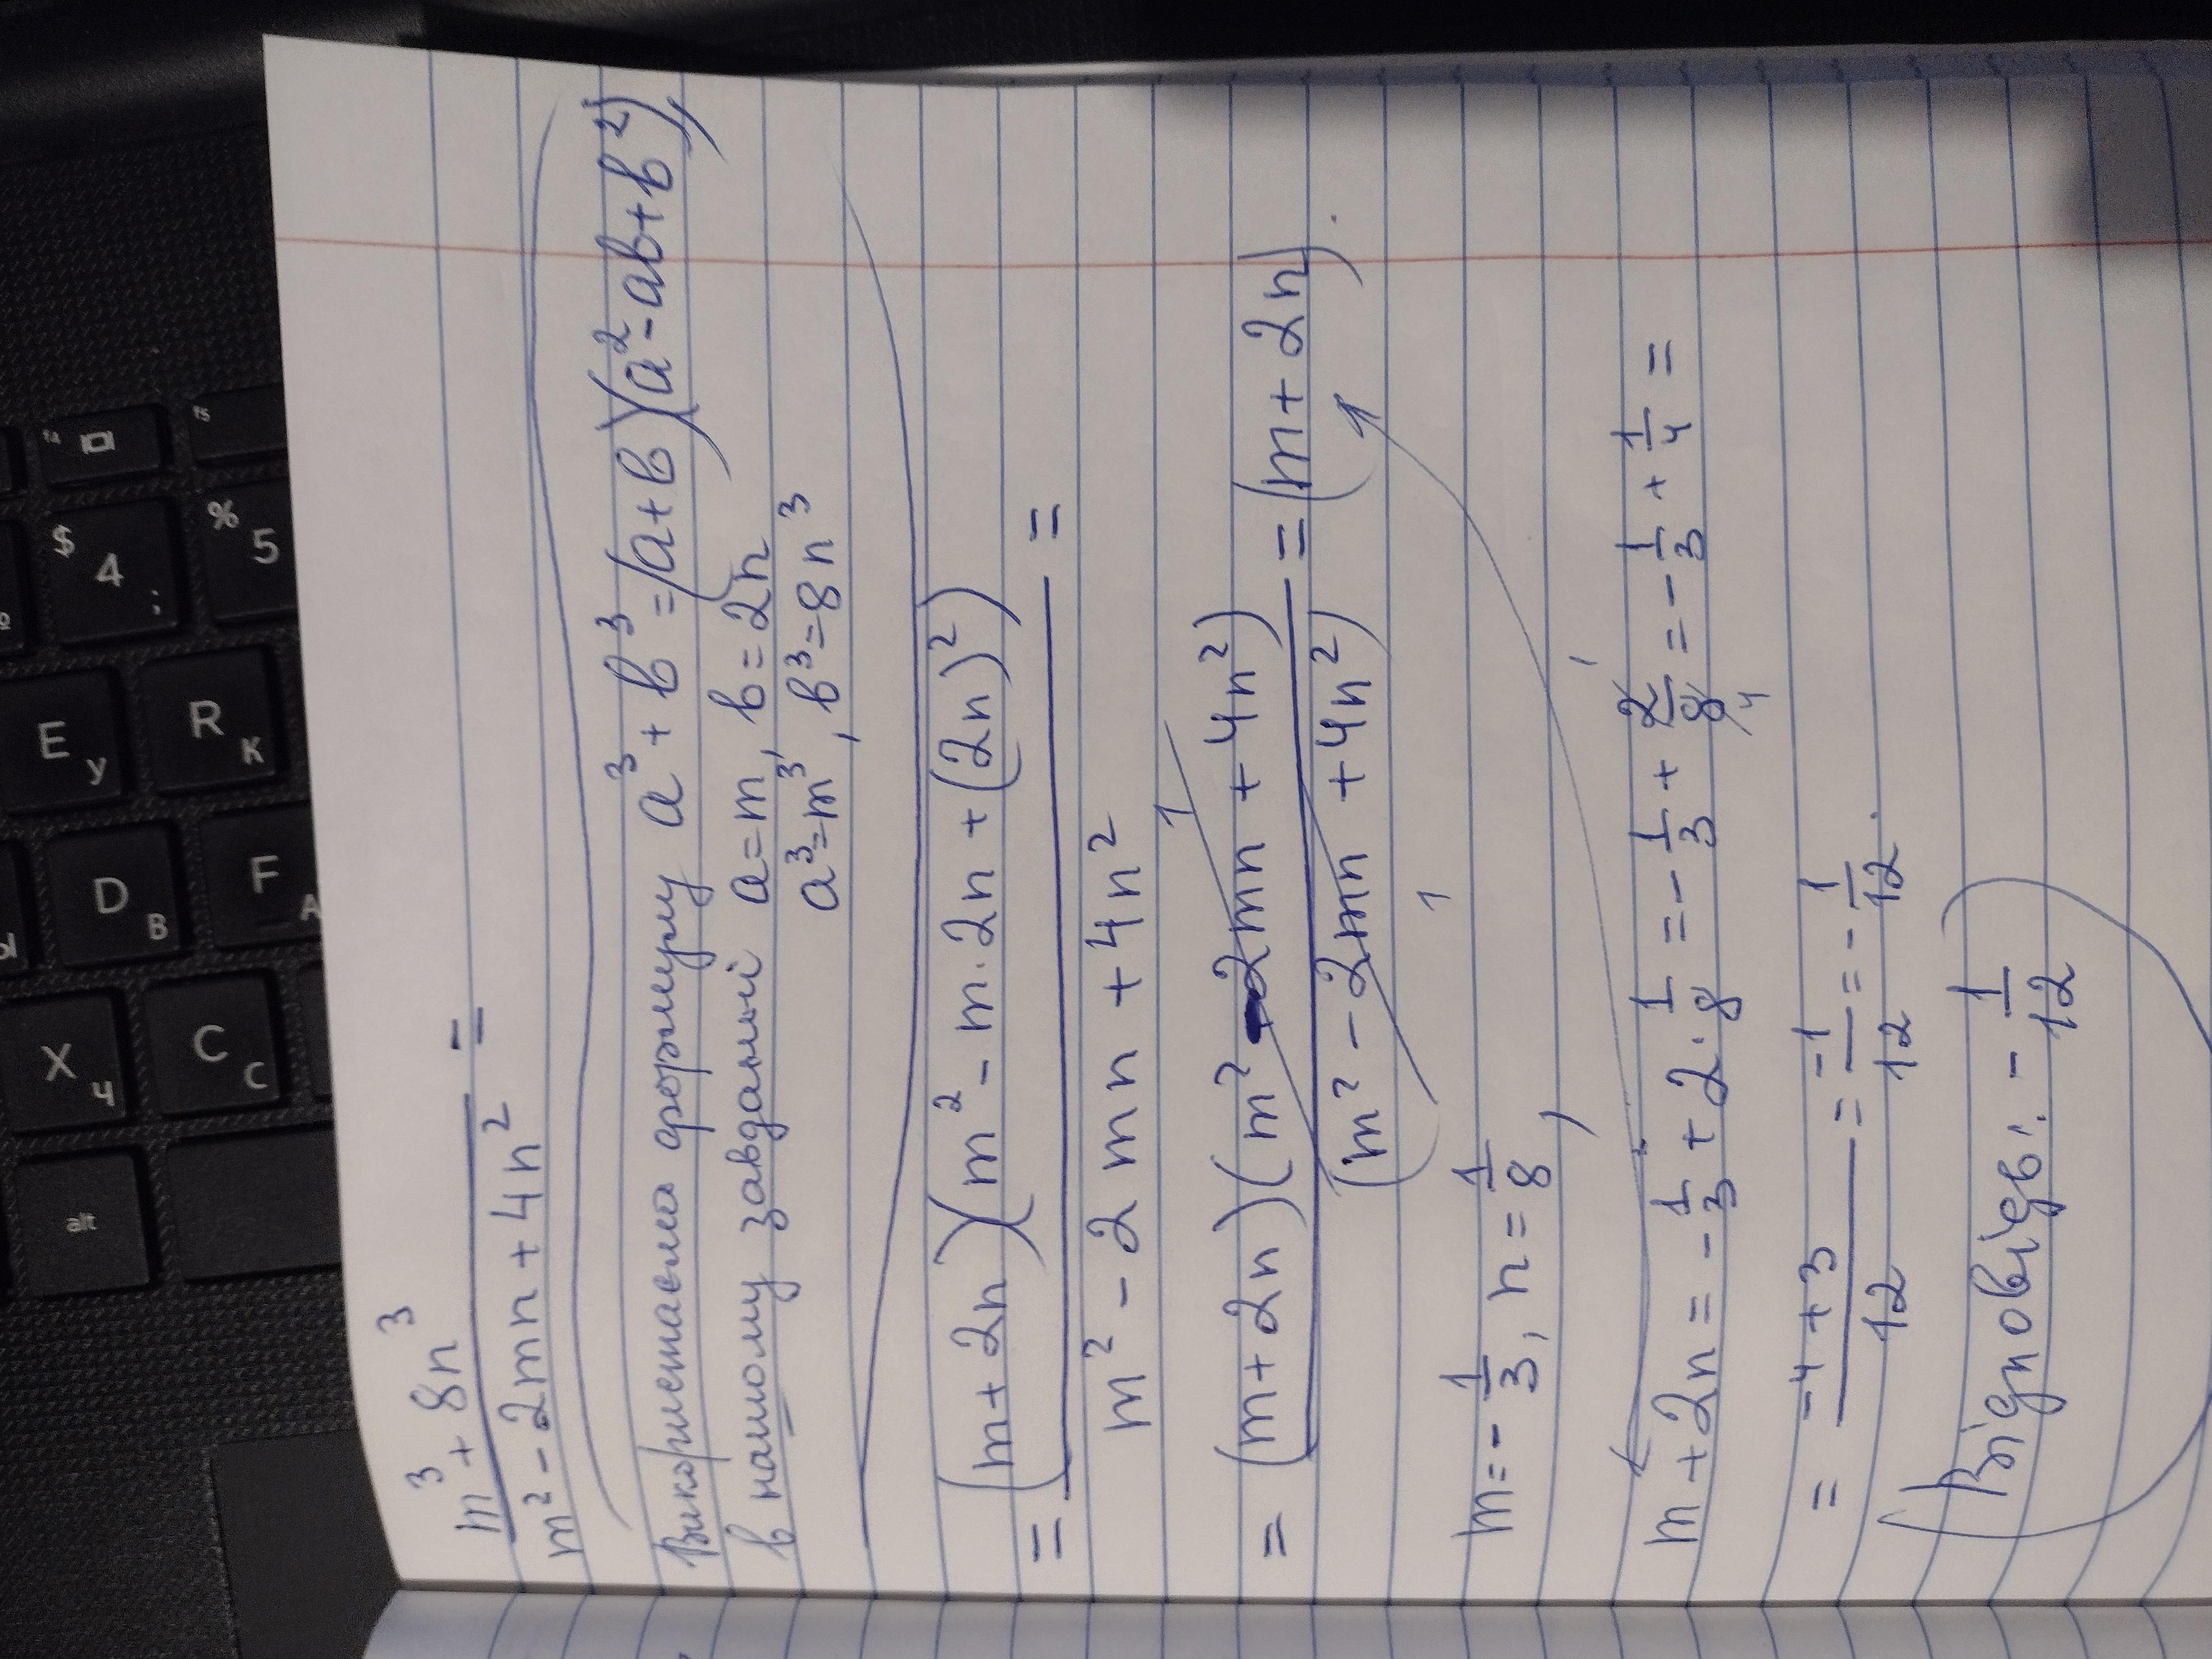 m³ + 8n³
m² - 2mn + 4n² =
Використаємо формулу a³ + b³ = (a + b)(a² - ab + b²)
в нашому завданні a = m, b = 2n
a³ = m³, b³ = 8n³
= (m + 2n)(m² - m · 2n + (2n)²) =
m² - 2mn + 4n²
1
= (m + 2n)(m² - 2mn + 4n²) = (m + 2n).
(m² - 2mn + 4n²)
1
m = - 1/3, n = 1/8,
m + 2n = - 1/3 + 2 · 1/8 = - 1/3 + 2/8 = - 1/3 + 1/4 =
1
4
= -4 + 3 / 12 = -1/12 = - 1/12.
Відповідь: - 1/12
$
4
;
%
5
E
У
R
К
D
В
F
А
X
Ч
C
С
alt
f4
f5